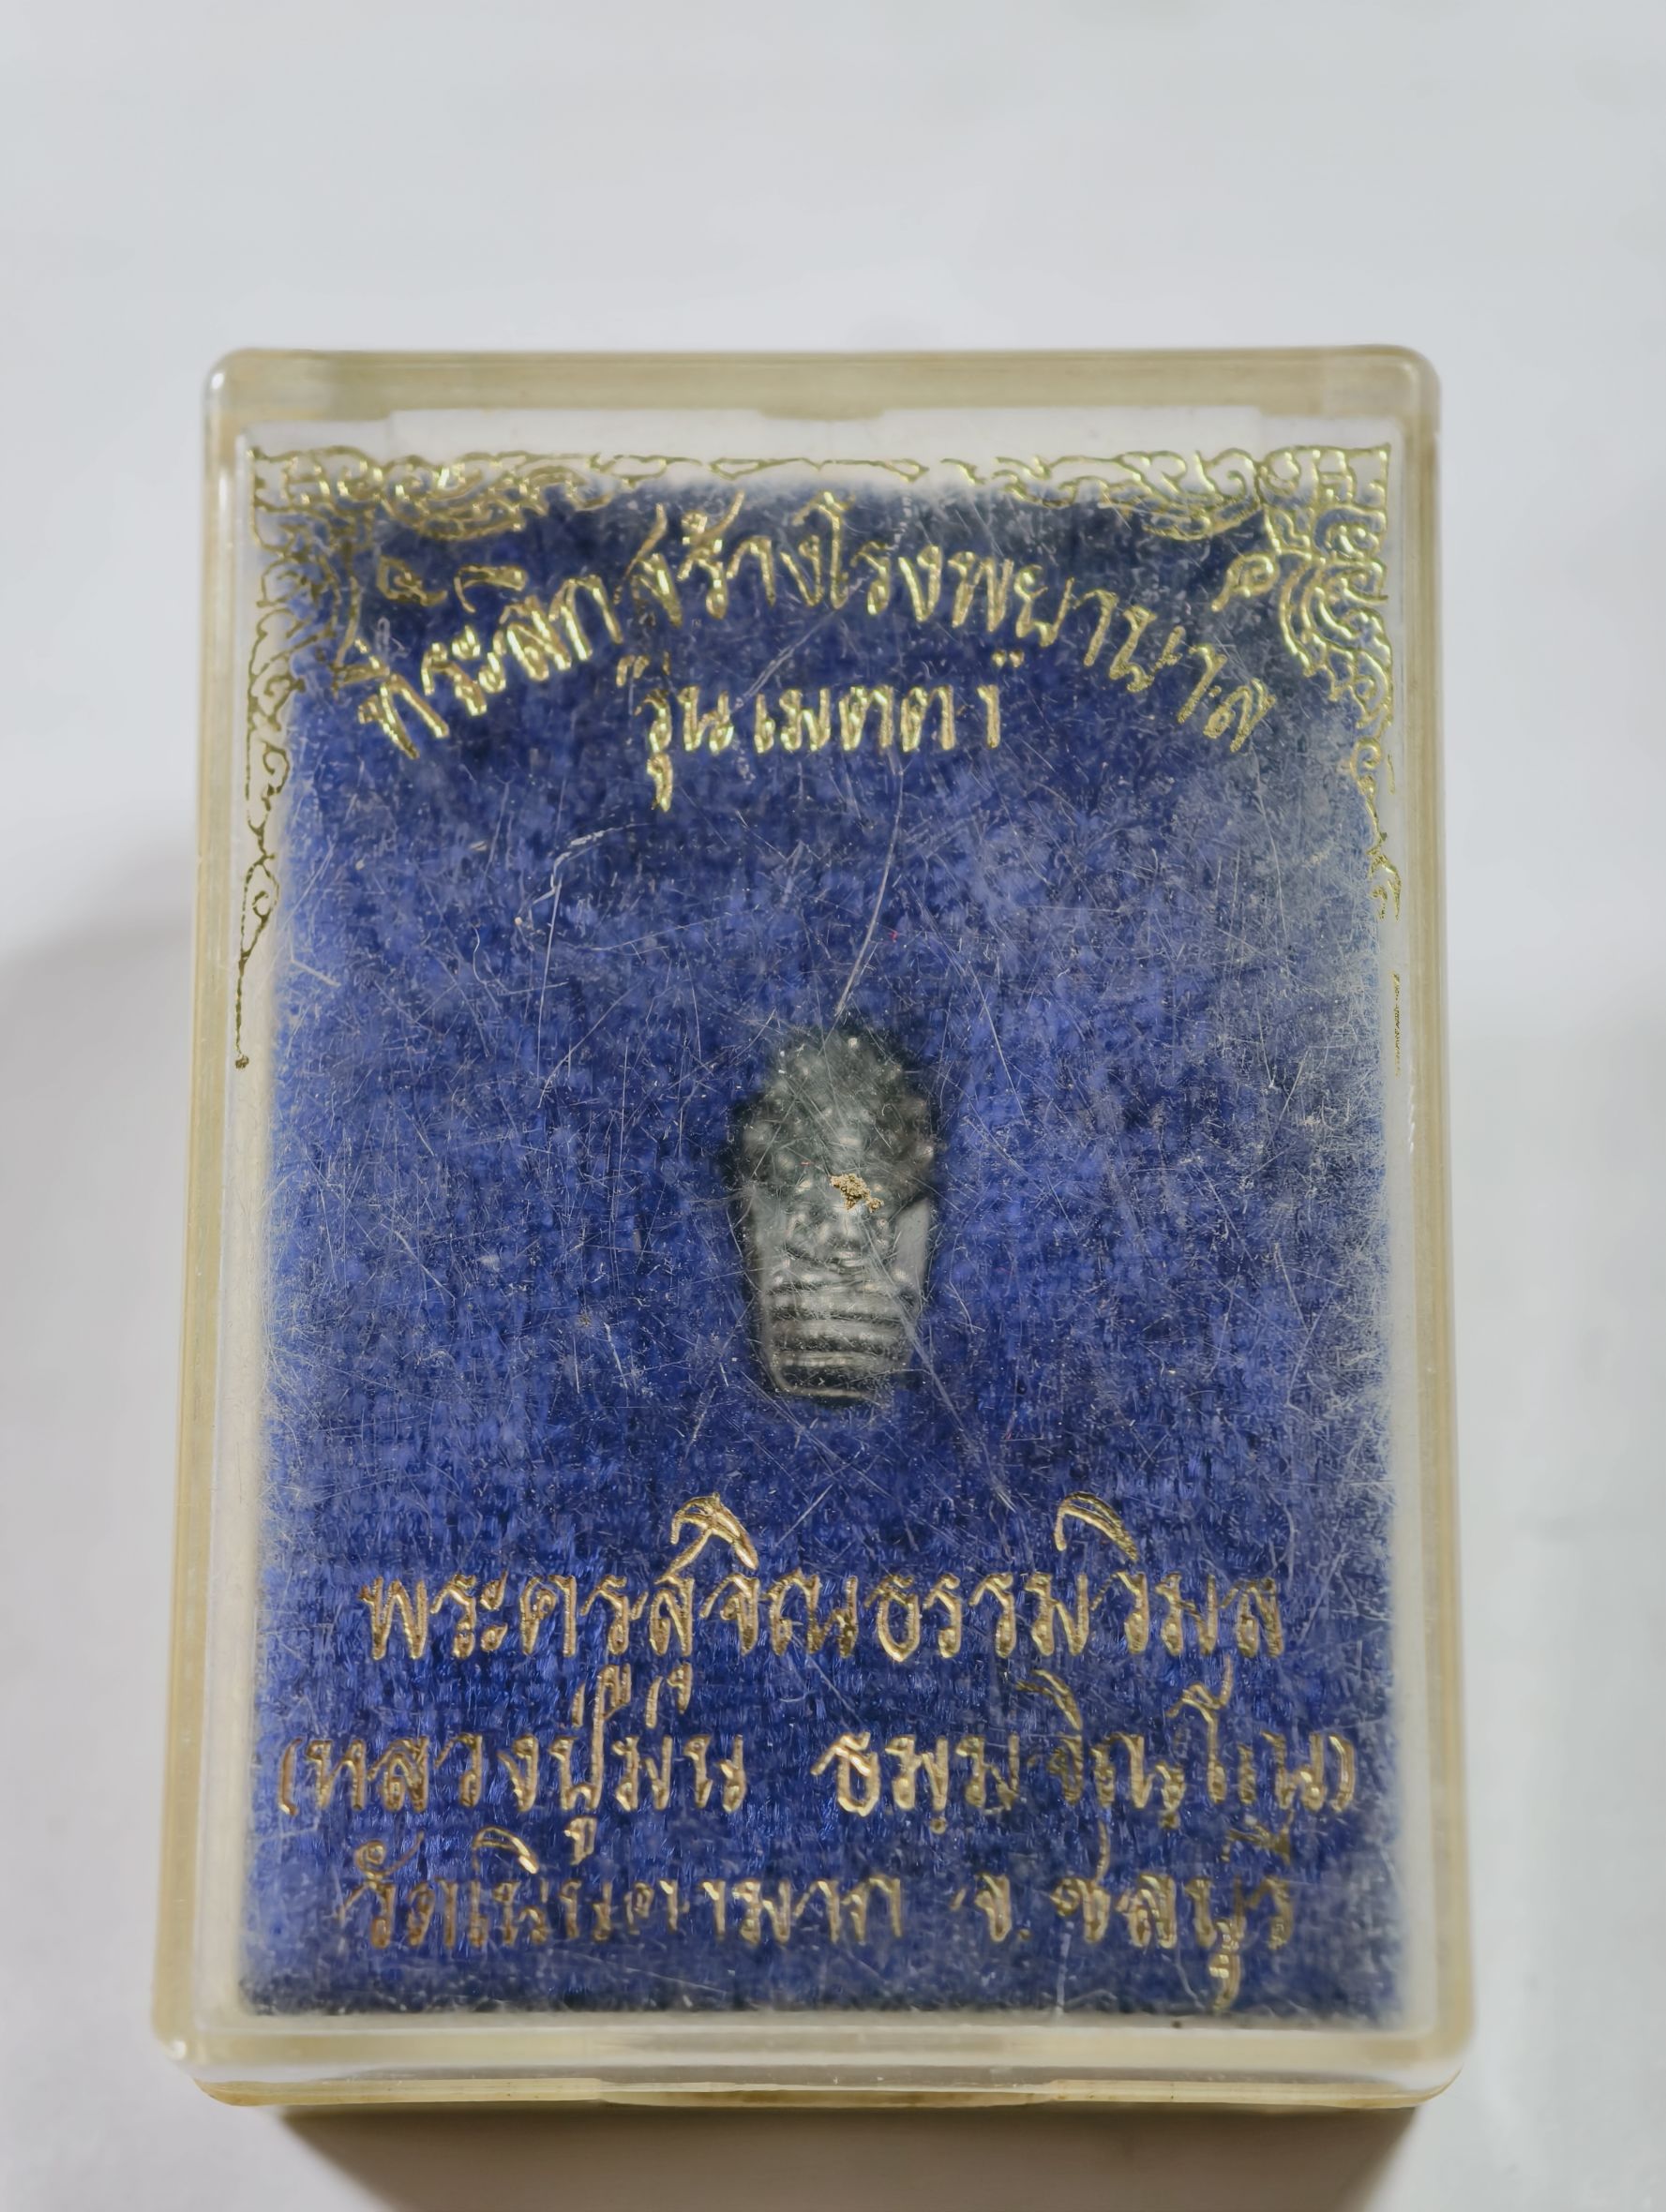 ที่ระลึกสร้างโรงพยาบาล
"รุ่นเมตตา"
พระครูสุจิณธรรมวิมล
(หลวงปู่ม่น ธมฺมจิณฺโณ)
วัดเนินตามาก จ.ชลบุรี